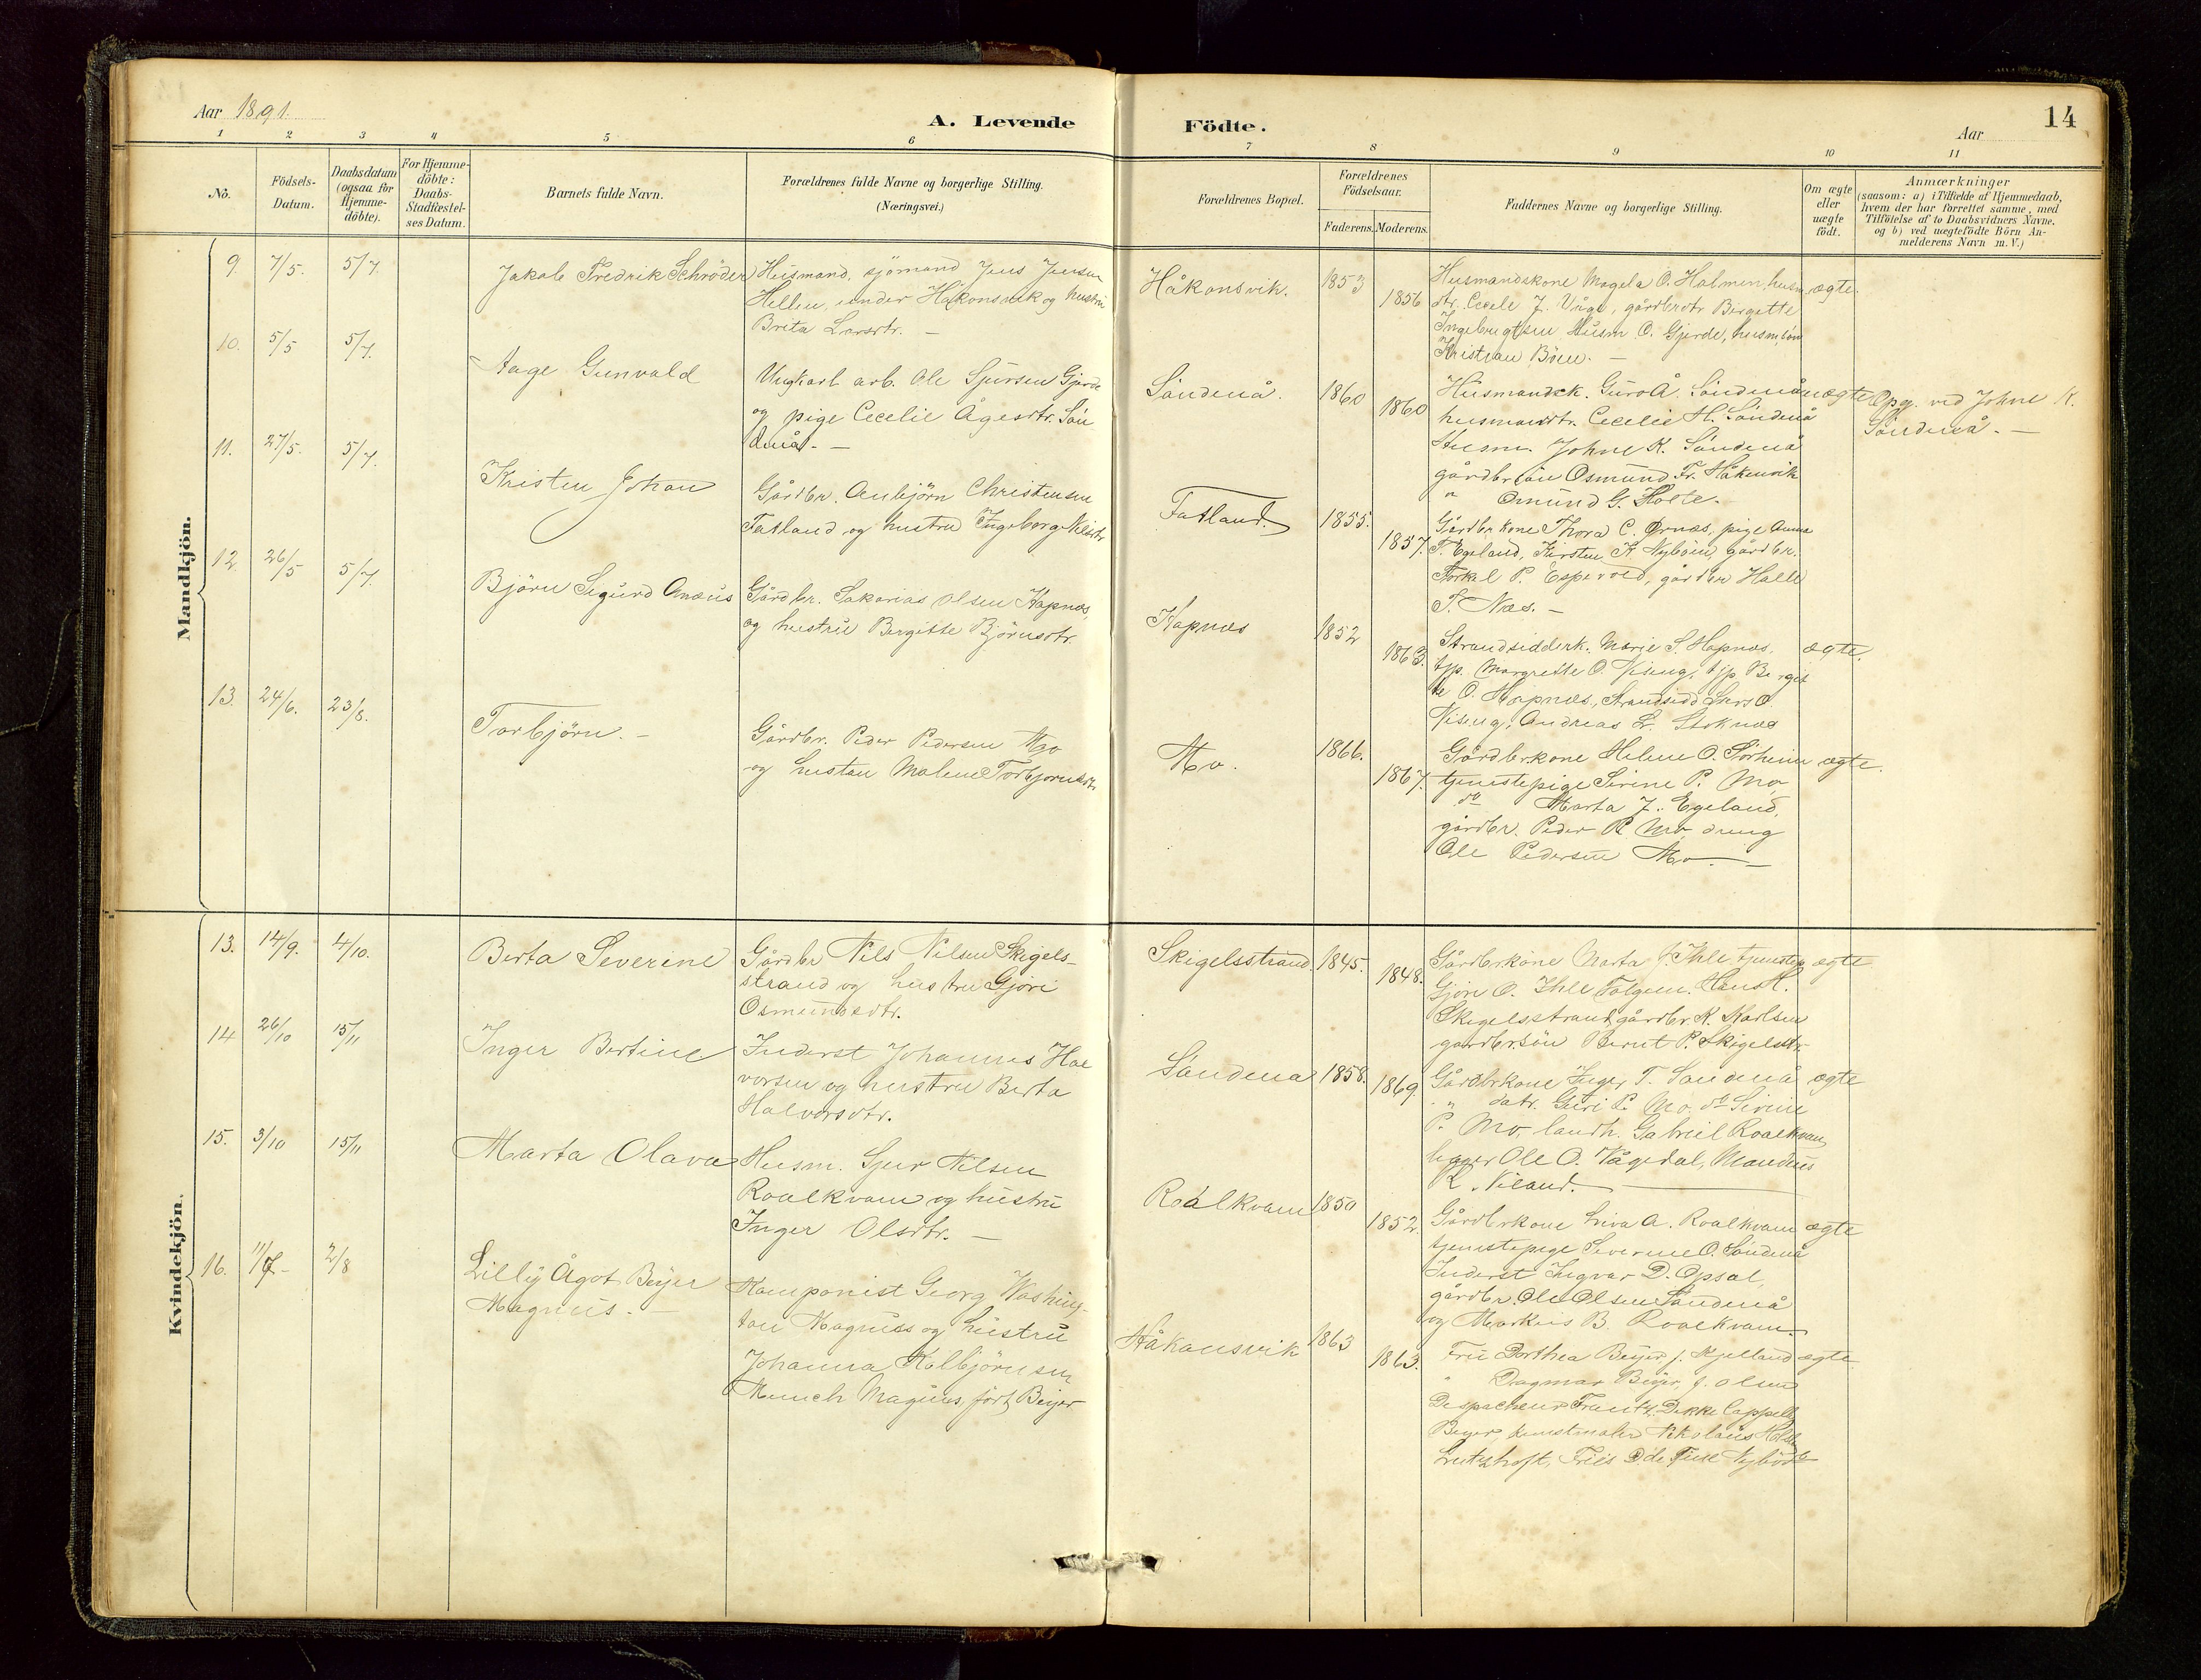 Aar 1891.
A. Levende Födte.
Aar
14
1 2 3 4 5 6 7 8 9 10 11
No.
Födsels-
Datum.
Daabsdatum
(ogsaa for
Hjemme-
döbte).
For Hjemme-
döbte:
Daabs-
Stadfæstel-
ses Datum.
Barnets fulde Navn.
Forældrenes fulde Navne og borgerlige Stilling.
(Næringsvei.)
Forældrenes Bopæl.
Forældrenes
Födselsaar.
Faderens. Moderens.
Faddernes Navne og borgerlige Stilling.
Om ægte
eller
uægte
födt.
Anmærkninger
(saasom: a) i Tilfælde af Hjemmedaab,
hvem der har forrettet samme, med
Tilföielse af to Daabsvidners Navne.
og b) ved uægtefödte Börn An-
melderens Navn m. V.)
Mandkjön.
9. 7/5. 5/7
Jakob Fredrik Schröder
Husmand, sjömand Jens Jensen
Hellen, under Håkonsvik og hustru
Brita Larsdtr. —
Håkonsvik. 1853 1856
Husmandskone Magela O. Halmen, husm.
dtr. Cecele J. Våge, gårdbrdtr Birgitte
Ingebrigtsen Husm. O. Gjerde, husm.sön
Kristian Böen. —
ægte.
10. 5/5 5/7.
Aage Gunvald
Ungkarl arb. Ole Sjursen Gjerde
og pige Cecelie Ågesdtr. Sön
denå. —
Söndenå. 1860 1860
Husmandsk. Guro Å. Söndenå
husmandsdtr. Cecelie H. Söndenå
Husm. Johne K. Söndenå
gårdbrsön Osmund Fr. Håkonvik
" Omund G. Holte.
uægte
Opg. ved Johne K.
Söndenå. —
11. 27/5. 5/7.
Kristen Johan
Gårdbr. Anbjörn Christensen
Fatland og hustru Ingeborg Nilsdtr
Fatland. 1855. 1857.
Gårdbrkone Thora C. Ørnæs, pige Anna
T. Egeland, Kirsten K. Nyböen, gårdbr.
Torkel P. Espevold, gårdbr Halle
T. Næs. —
12. 26/5 5/7.
Björn Sigurd Anæus
Gårdbr. Sakarias Olsen Hapnæs,
og hustru Birgitte Björnsdtr.
Hapnæs 1852 1863.
Strandsidderk. Marie S. Hapnæs.
tjp. Margrethe O. Viteng, tjp Birgit
te O. Hapnæs, Strandsidd Lars O.
Andreas L. Stoknæs
ægte.
13. 24/6. 23/8.
Torbjörn. —
Gårdbr. Peder Pedersen Mo
og hustru Malene Torbjornsdtr
Mo. 1866. 1867.
Gårdbrkone Helene O. Sörheim
tjenestepige Sirine P. Mo,
do Marta J. Egeland,
gårdbr. Peder P. Mo, dreng
Ole Pedersen Mo. —
ægte.
Kvindekjön.
13. 14/9. 4/10.
Berta Severine
Gårdbr Nils Nilsen Skigels-
strand og hustru Gjøri
Osmundsdtr.
Skigelsstrand. 1845. 1848.
Gårdbrkone Marta J. Ihle tjenstep
Gjöri O. Ihle Folgem. Hans H.
Skigelsstrand, gårdbr. K. Karlsen
gårdbr.sön Bernt P. Skigelsstr.
ægte
14 26/10 15/11
Inger Bertine
Inderst Johannes Hal
vorsen og hustru Berta
Halvorsdtr.
Söndenå 1858. 1869.
Gårdbrkone Inger T. Söndenå
" datr. Guri P. Mo. do Sirine
P. Mo, landh. Gabriel Roalkvam,
Ole O. Vågedal, Mandius
K. Niland. —
ægte
15. 3/10 15/11
Marta Olava
Husm. Sjur Nilsen
Roalkvam og hustru
Inger Olsdtr. —
Roalkvam 1850 1852.
Gårdbrkone Siva A. Roalkvam
tjenestepige Severine O. Söndenå
Inderst Ingvar D. Opsal,
gårdbr. Ole Olsen Söndenå
og Markus B. Roalkvam.
ægte
16. 11/7 2/8
Lilly Ågot Beyer
Magnus. —
Komponist Georg Washing-
ton Magnus og hustru
Johanna Kolbjörnsen
Munch Magnus, født Beyer
Håkonsvik 1863 1863.
Frue Dorthea Beyer f. Kjelland
" Dagmar Beyer, f. Olsen
Despacheur Frantz Dekke Cappelen
Beyer, kunstmaler Nikolaus
ægte